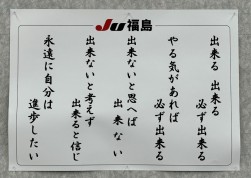 JU福島
出来る 出来る
必ず出来る
やる気があれば
必ず出来る
出来ないと思へば
出来ない
出来ないと考えず
出来ると信じ
永遠に自分は
進歩したい